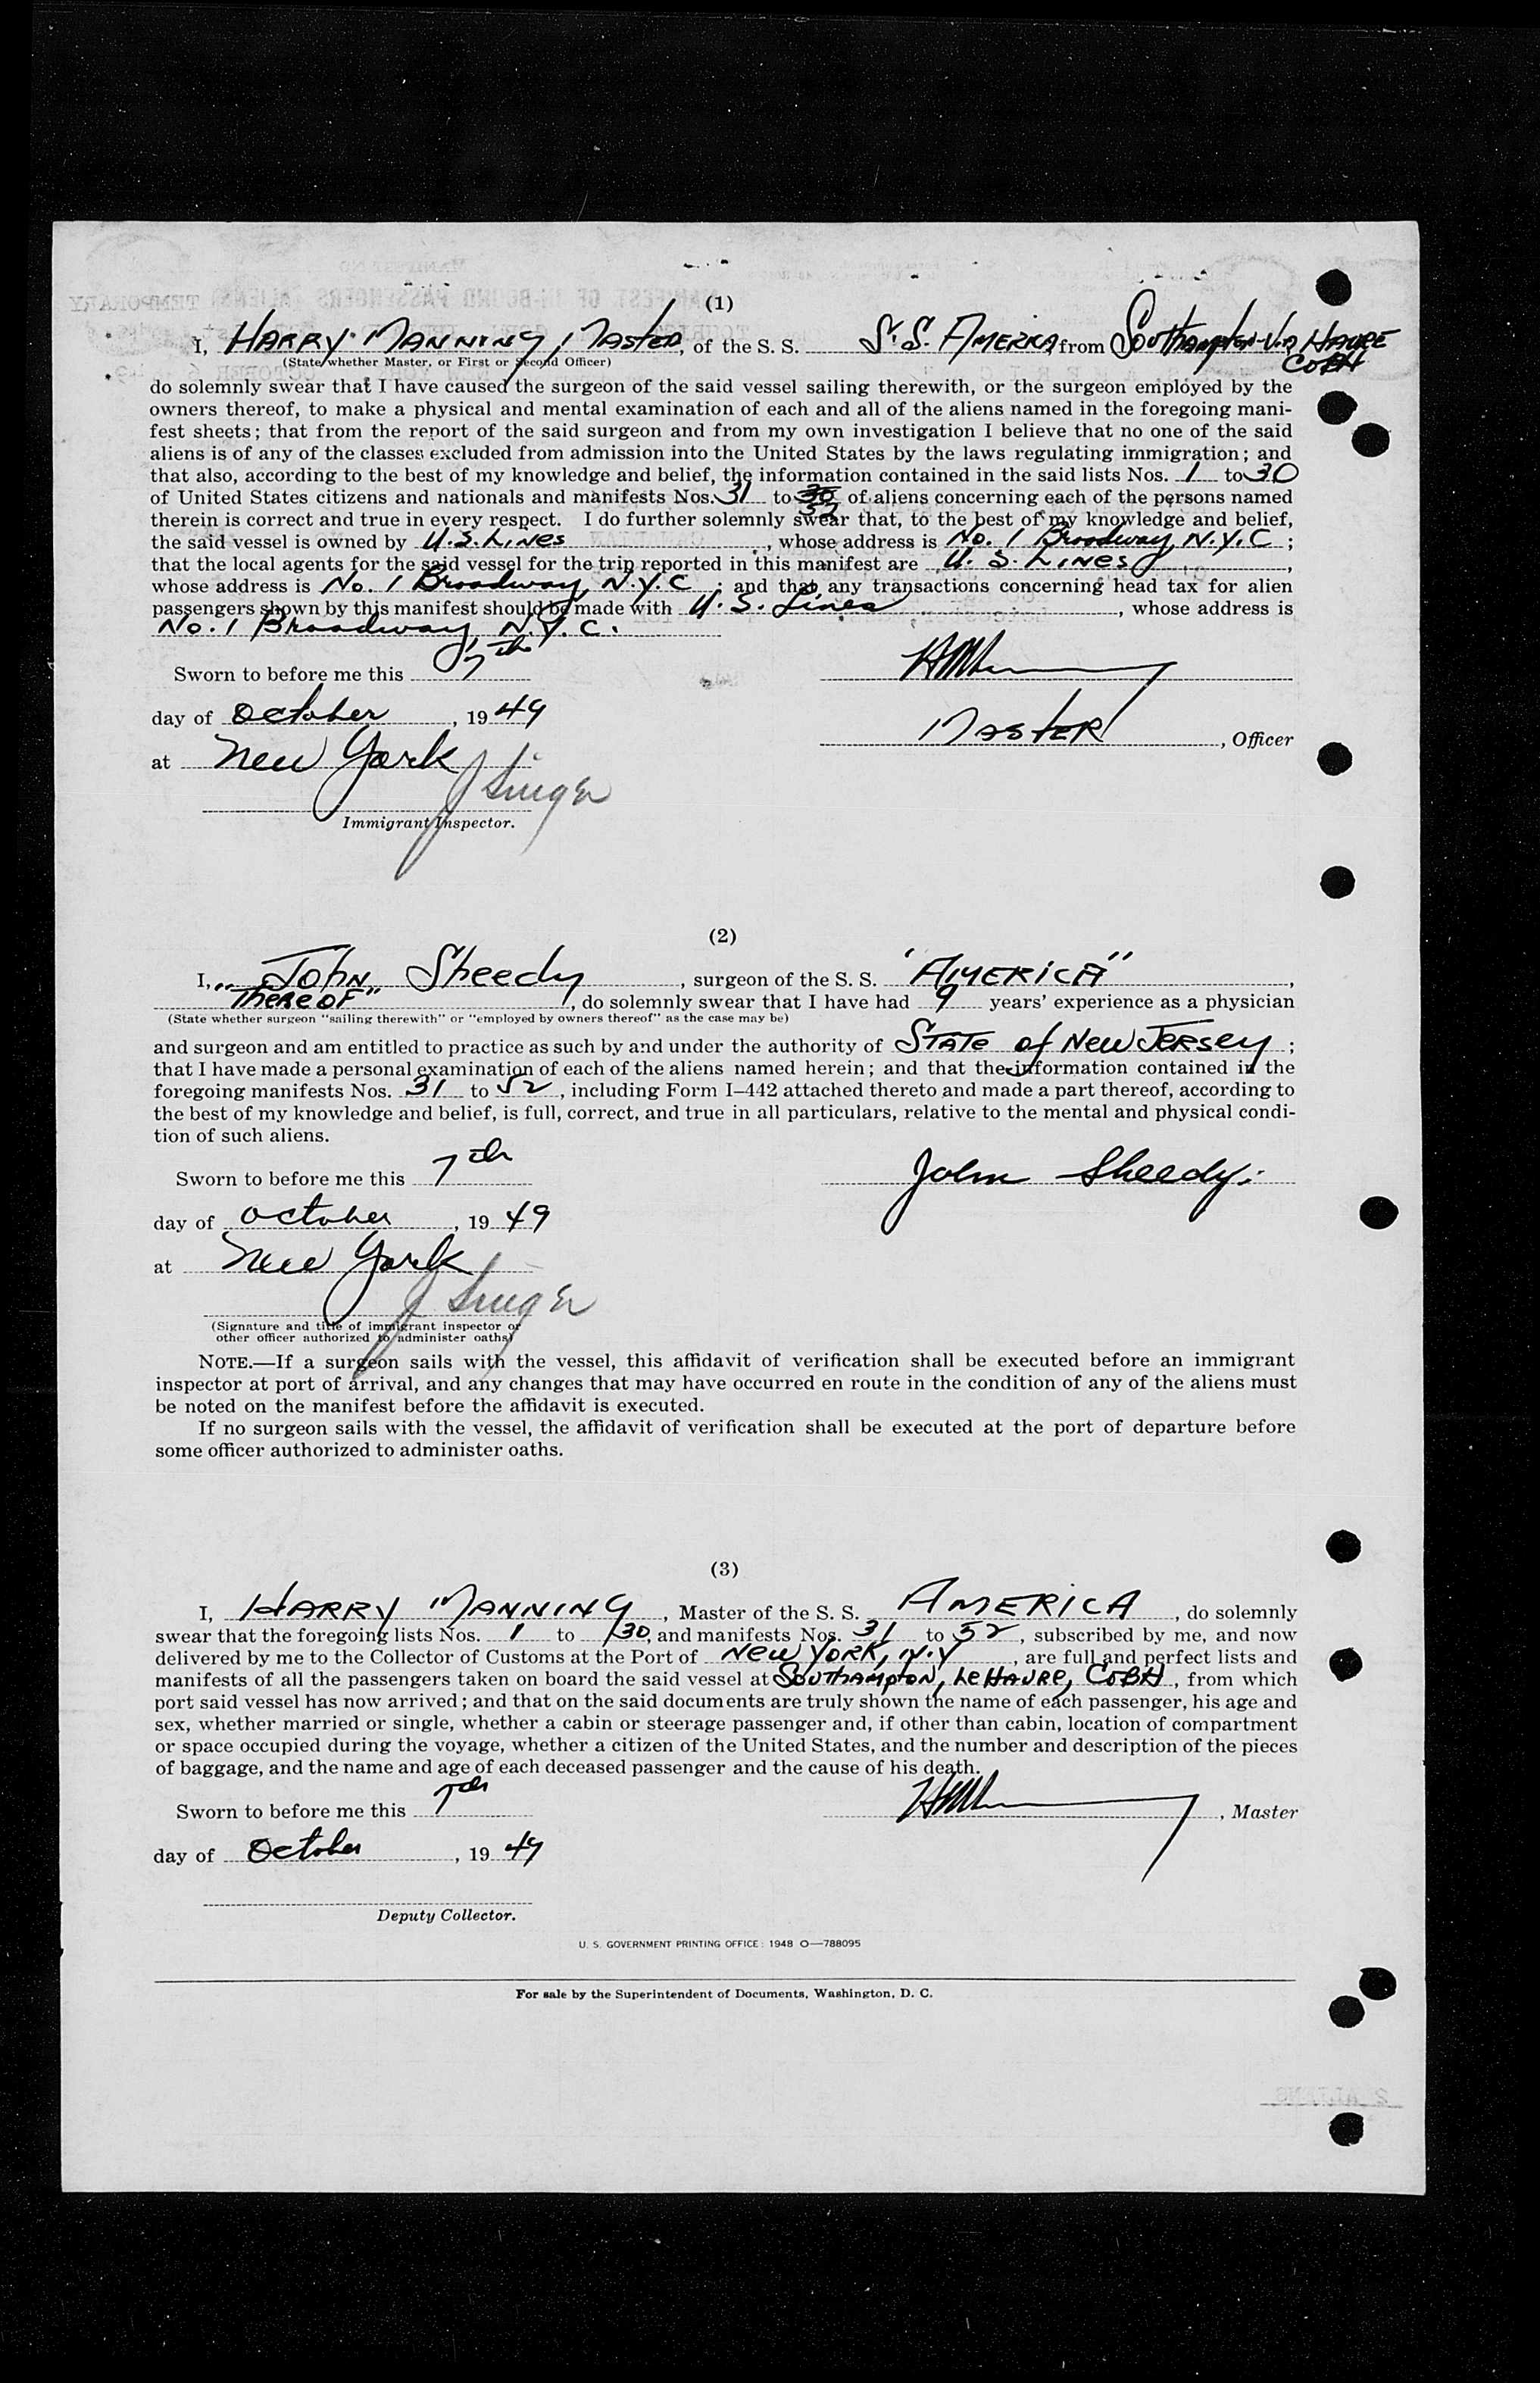 (1)
I, HARRY MANNING, MASTER, of the S. S. S.S. AMERICA from SOUTHAMPTON-VIA HAVRE
(State whether Master, or First or Second Officer) COBH
do solemnly swear that I have caused the surgeon of the said vessel sailing therewith, or the surgeon employed by the
owners thereof, to make a physical and mental examination of each and all of the aliens named in the foregoing mani-
fest sheets; that from the report of the said surgeon and from my own investigation I believe that no one of the said
aliens is of any of the classes excluded from admission into the United States by the laws regulating immigration; and
that also, according to the best of my knowledge and belief, the information contained in the said lists Nos. 1 to 30
of United States citizens and nationals and manifests Nos. 31 to 30 of aliens concerning each of the persons named
52
therein is correct and true in every respect. I do further solemnly swear that, to the best of my knowledge and belief,
the said vessel is owned by U.S. Lines, whose address is No. 1 Broadway, N.Y.C;
that the local agents for the said vessel for the trip reported in this manifest are U. S. LINES,
whose address is No. 1 Broadway, N.Y.C; and that any transactions concerning head tax for alien
passengers shown by this manifest should be made with U. S. Lines, whose address is
No. 1 Broadway, N.Y.C.
Sworn to before me this 7th
day of October, 1949
MASTER, Officer
at New York
J Singer
Immigrant Inspector.
(2)
I, "John Sheedy, surgeon of the S. S. "AMERICA",
Thereof", do solemnly swear that I have had 9 years' experience as a physician
(State whether surgeon "sailing therewith" or "employed by owners thereof" as the case may be)
and surgeon and am entitled to practice as such by and under the authority of STATE of NEW JERSEY;
that I have made a personal examination of each of the aliens named herein; and that the information contained in the
foregoing manifests Nos. 31 to 52, including Form I–442 attached thereto and made a part thereof, according to
the best of my knowledge and belief, is full, correct, and true in all particulars, relative to the mental and physical condi-
tion of such aliens.
Sworn to before me this 7th
John Sheedy.
day of October, 1949
at New York
J Singer
(Signature and title of immigrant inspector or
other officer authorized to administer oaths)
NOTE.—If a surgeon sails with the vessel, this affidavit of verification shall be executed before an immigrant
inspector at port of arrival, and any changes that may have occurred en route in the condition of any of the aliens must
be noted on the manifest before the affidavit is executed.
If no surgeon sails with the vessel, the affidavit of verification shall be executed at the port of departure before
some officer authorized to administer oaths.
(3)
I, HARRY MANNING, Master of the S. S. AMERICA, do solemnly
swear that the foregoing lists Nos. 1 to 30, and manifests Nos. 31 to 52, subscribed by me, and now
delivered by me to the Collector of Customs at the Port of NEW YORK, N.Y, are full and perfect lists and
manifests of all the passengers taken on board the said vessel at SOUTHAMPTON, LE HAVRE, COBH, from which
port said vessel has now arrived; and that on the said documents are truly shown the name of each passenger, his age and
sex, whether married or single, whether a cabin or steerage passenger and, if other than cabin, location of compartment
or space occupied during the voyage, whether a citizen of the United States, and the number and description of the pieces
of baggage, and the name and age of each deceased passenger and the cause of his death.
Sworn to before me this 7th
, Master
day of October, 1949
Deputy Collector.
U. S. GOVERNMENT PRINTING OFFICE: 1948 O—788095
For sale by the Superintendent of Documents, Washington, D. C.